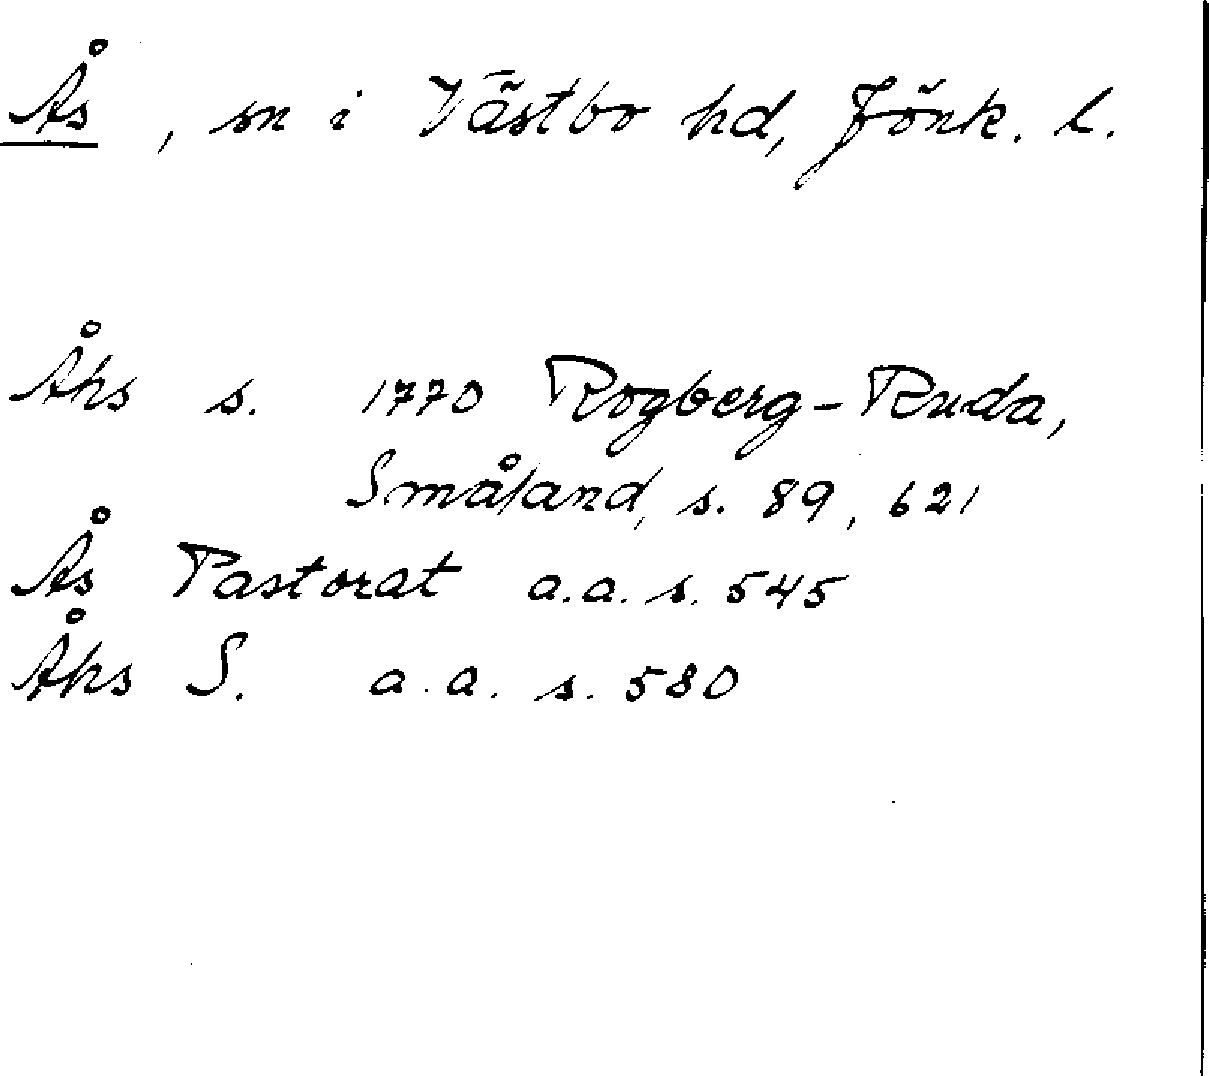 Ås, sn i Västbo hd, Jönk. l.
Åhs s. 1770 Rogberg-Ruda,
Småland, s. 89, 621
Ås Pastorat a.a. s. 545
Åhs S. a.a. s. 580